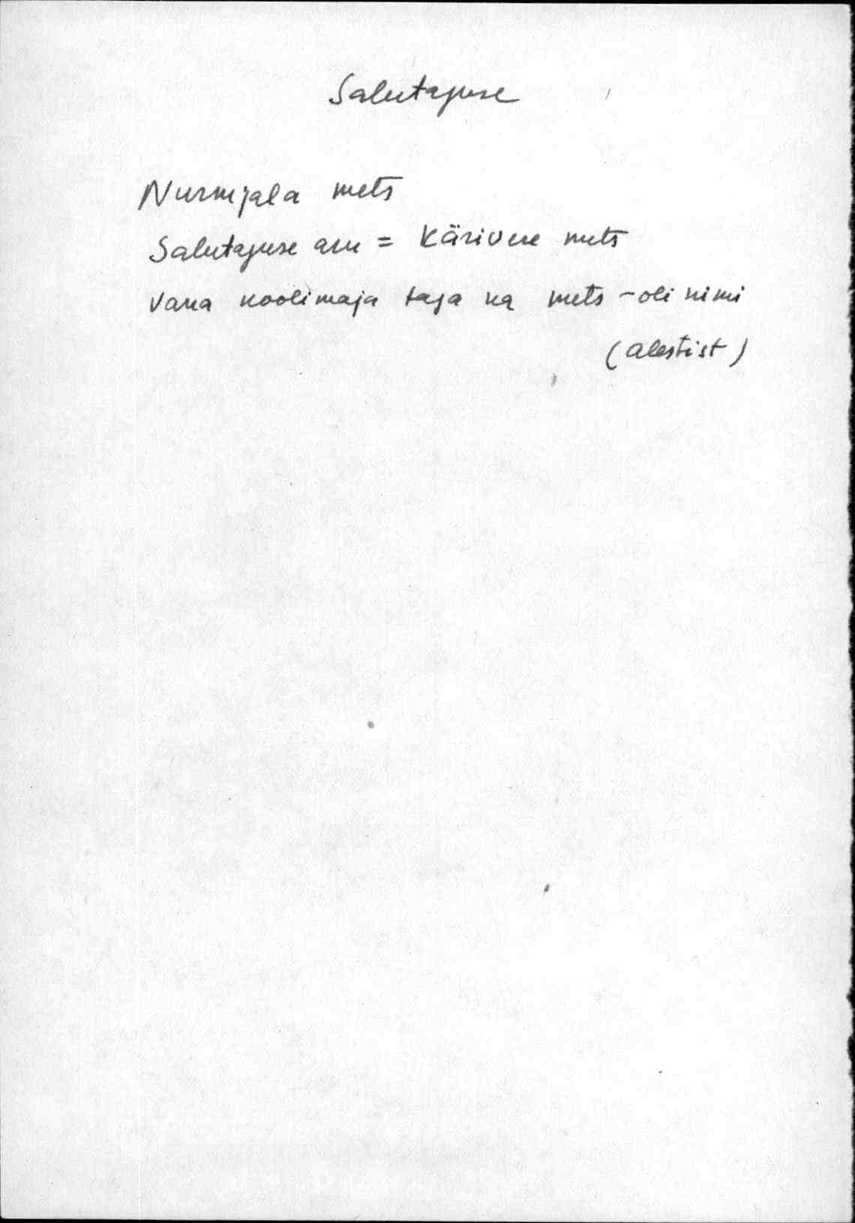 Salutaguse
Nurmjala mets
Salutaguse aru = Kärivere mets
vana koolimaja taga ka mets - oli nimi
(alestist)